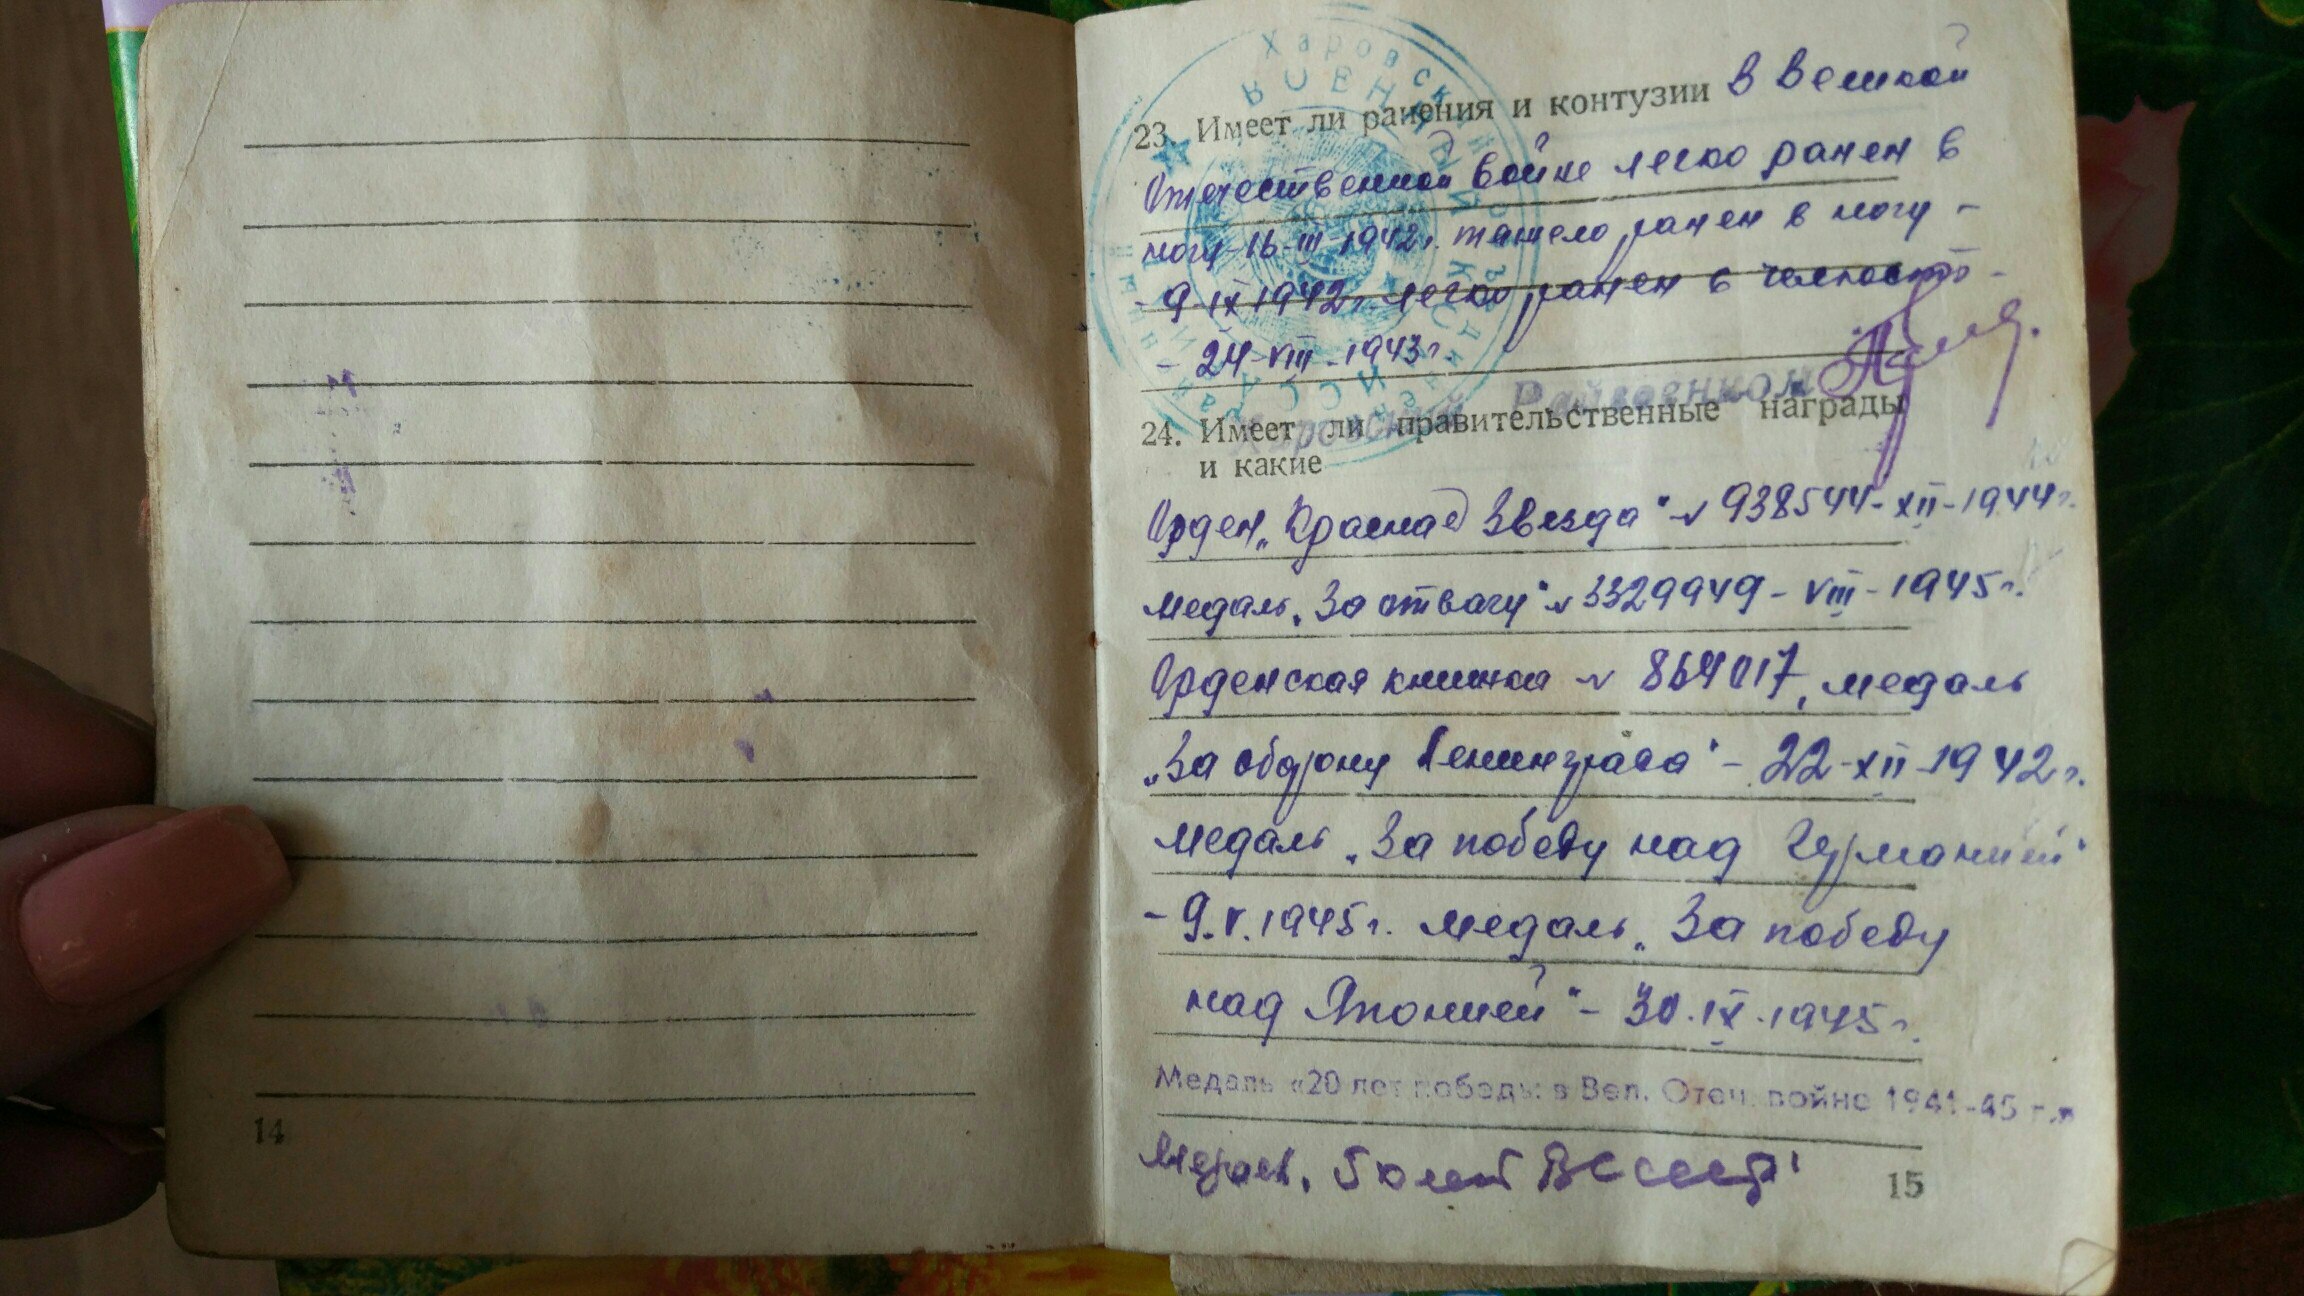 23. Имеет ли ранения и контузии в Великой
Отечественной войне легко ранен в
ногу 16-III-1942г. тяжело ранен в ногу -
- 9-IX 1942г. легко ранен в челюсть -
- 24-VIII-1943г.
Харовский Райвоенком
24. Имеет ли правительственные награды
и какие
Орден „Красная Звезда" N 938544-XII-1944г.
медаль „За отвагу" N 3329949-VIII-1945г.
Орденская книжка N 864017, медаль
„За оборону Ленинграда" - 22-XII-1942г.
медаль „За победу над Германией"
- 9.V.1945г. медаль „За победу
над Японией" - 30.IX.1945г.
Медаль «20 лет победы в Вел. Отеч. войне 1941-45 г.»
Медаль „50 лет ВС СССР"
14
15